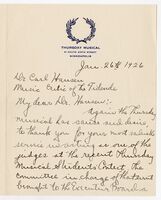 THURSDAY MUSICAL
MINNEAPOLIS
Jan. 26th 1926
Dr Carl Hansen
Music Critic of the Tidende
My dear Dr. Hansen:-
Again the Thursday
Musical has cause and desire
to thank you for your most valuable
service in acting as one of the
judges at the recent Thursday
Musical Students Contest. The
committee in charge of that event
brought to the Executive Board a